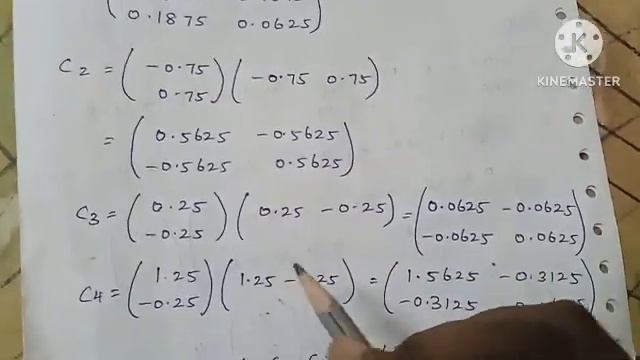 0.1875 0.0625
KINEMASTER
C2 = (-0.75 0.75) (-0.75 0.75)
= (0.5625 -0.5625
-0.5625 0.5625)
C3 = (0.25 -0.25) (0.25 -0.25) = (0.0625 -0.0625
-0.0625 0.0625)
C4 = (1.25 -0.25) (1.25 - .25) = (1.5625 -0.3125
-0.3125